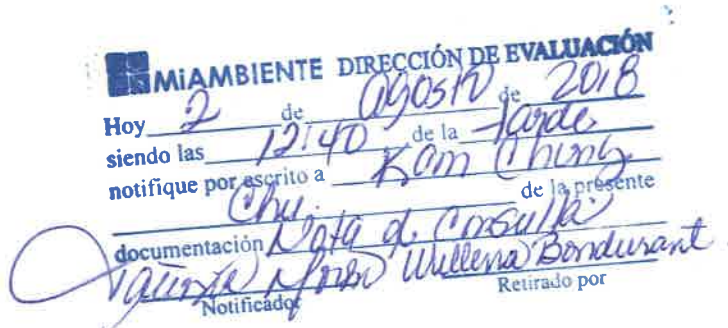 MiAMBIENTE DIRECCIÓN DE EVALUACIÓN
Hoy 2 de agosto de 2018
siendo las 12:40 de la tarde
notifique por escrito a Kam Ching
Chu. de la presente
documentación Nota de Consulta
Bondurant
Notificador Retirado por